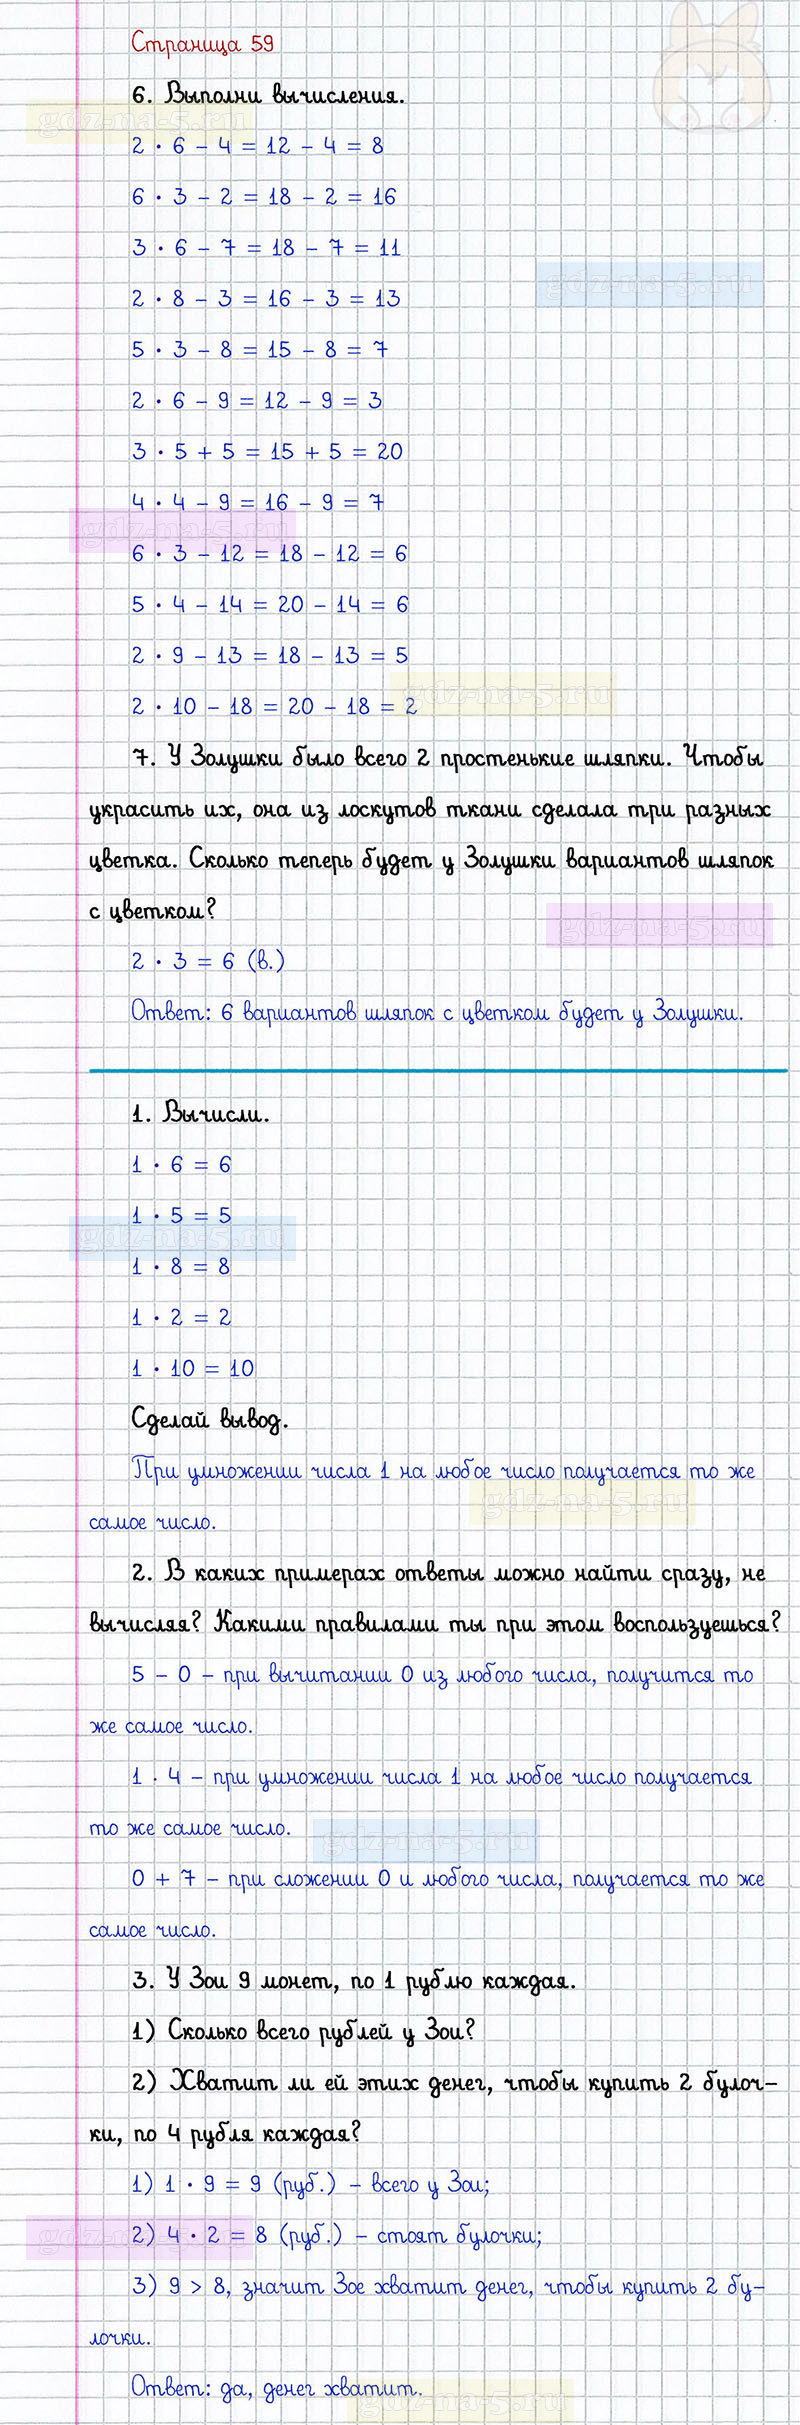 Страница 59
6. Выполни вычисления.
gdz-na-5.ru
2 · 6 – 4 = 12 – 4 = 8
6 · 3 – 2 = 18 – 2 = 16
3 · 6 – 7 = 18 – 7 = 11
gdz-na-5.ru
2 · 8 – 3 = 16 – 3 = 13
5 · 3 – 8 = 15 – 8 = 7
2 · 6 – 9 = 12 – 9 = 3
3 · 5 + 5 = 15 + 5 = 20
4 · 4 – 9 = 16 – 9 = 7
gdz-na-5.ru
6 · 3 – 12 = 18 – 12 = 6
5 · 4 – 14 = 20 – 14 = 6
2 · 9 – 13 = 18 – 13 = 5
gdz-na-5.ru
2 · 10 – 18 = 20 – 18 = 2
7. У Золушки было всего 2 простенькие шляпки. Чтобы
украсить их, она из лоскутов ткани сделала три разных
цветка. Сколько теперь будет у Золушки вариантов шляпок
с цветком?
gdz-na-5.ru
2 · 3 = 6 (в.)
Ответ: 6 вариантов шляпок с цветком будет у Золушки.
1. Вычисли.
1 · 6 = 6
1 · 5 = 5
gdz-na-5.ru
1 · 8 = 8
1 · 2 = 2
1 · 10 = 10
Сделай вывод.
При умножении числа 1 на любое число получается то же
gdz-na-5.ru
самое число.
2. В каких примерах ответы можно найти сразу, не
вычисляя? Какими правилами ты при этом воспользуешься?
5 – 0 – при вычитании 0 из любого числа, получится то
же самое число.
1 · 4 – при умножении числа 1 на любое число получается
то же самое число.
gdz-na-5.ru
0 + 7 – при сложении 0 и любого числа, получается то же
самое число.
3. У Зои 9 монет, по 1 рублю каждая.
1) Сколько всего рублей у Зои?
2) Хватит ли ей этих денег, чтобы купить 2 булоч-
ки, по 4 рубля каждая?
1) 1 · 9 = 9 (руб.) – всего у Зои;
2) 4 · 2 = 8 (руб.) – стоят булочки;
gdz-na-5.ru
3) 9 > 8, значит Зое хватит денег, чтобы купить 2 бу-
лочки.
Ответ: да, денег хватит.
gdz-na-5.ru